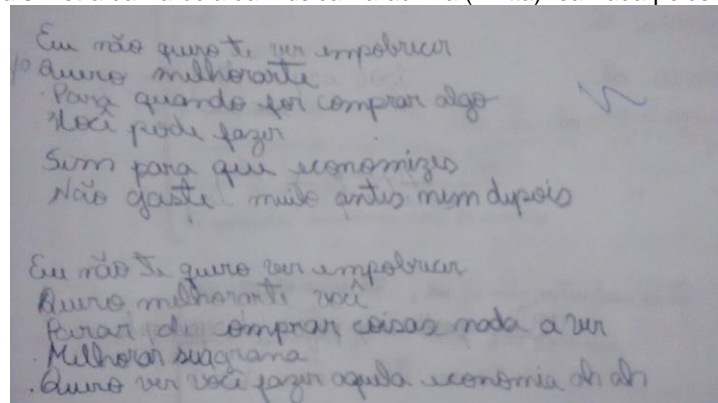 Eu não quero te ver empobrecer
Quero milhorarte
Para quando for comprar algo
Você pode fazer
Sem para que economizes
Não gaste muito antes nem depois
Eu não te quero ver empobrecer
Quero melhorante você
Parar de comprar coisas nada a ver
Melhorar sua grana
Quero ver você fazer aquela economia oh oh